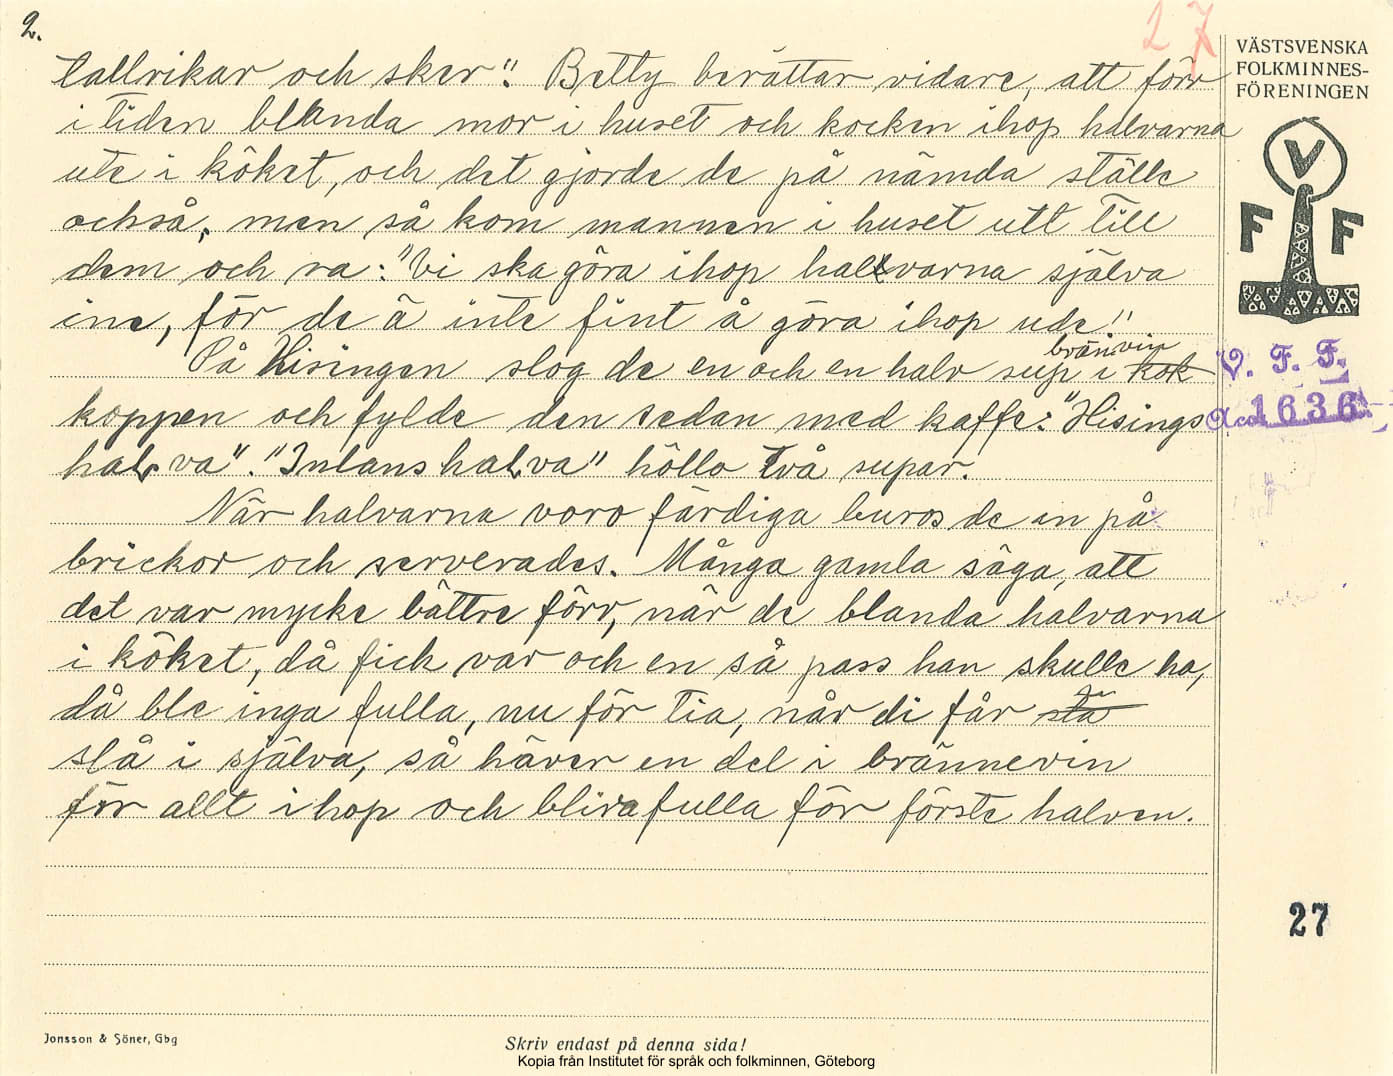 2.
27
VÄSTSVENSKA
FOLKMINNES-
FÖRENINGEN
V
F F
tallrikar och sker". Betty berättar vidare, att förr
i tiden blanda mor i huset och kocken ihop halvarna
ute i köket, och det gjorde de på nämda ställe
också, men så kom mannen i huset utt till
dem och sa: "Vi ska göra ihop halvarna själva
ine, för de ä inte fint å göra ihop ude!"
På Hisingen slog de en och en halv sup brän.vin i kok
koppen och fylde den sedan med kaffe: "Hisings
halva". "Inlans halva" höllo två supar.
När halvarna voro färdiga buros de in på
brickor och serverades. Många gamla säga, att
det var mycke bättre förr, när de blanda halvarna
i köket, då fick var och en så pass han skulle ha,
då ble inga fulla, nu för tia, når di får sta
slå i själva, så häver en del i brännevin
för allt ihop och blira fulla för förste halven.
V. F. F.
Acc. 1636
27
Jonsson & Söner, Gbg
Skriv endast på denna sida!
Kopia från Institutet för språk och folkminnen, Göteborg